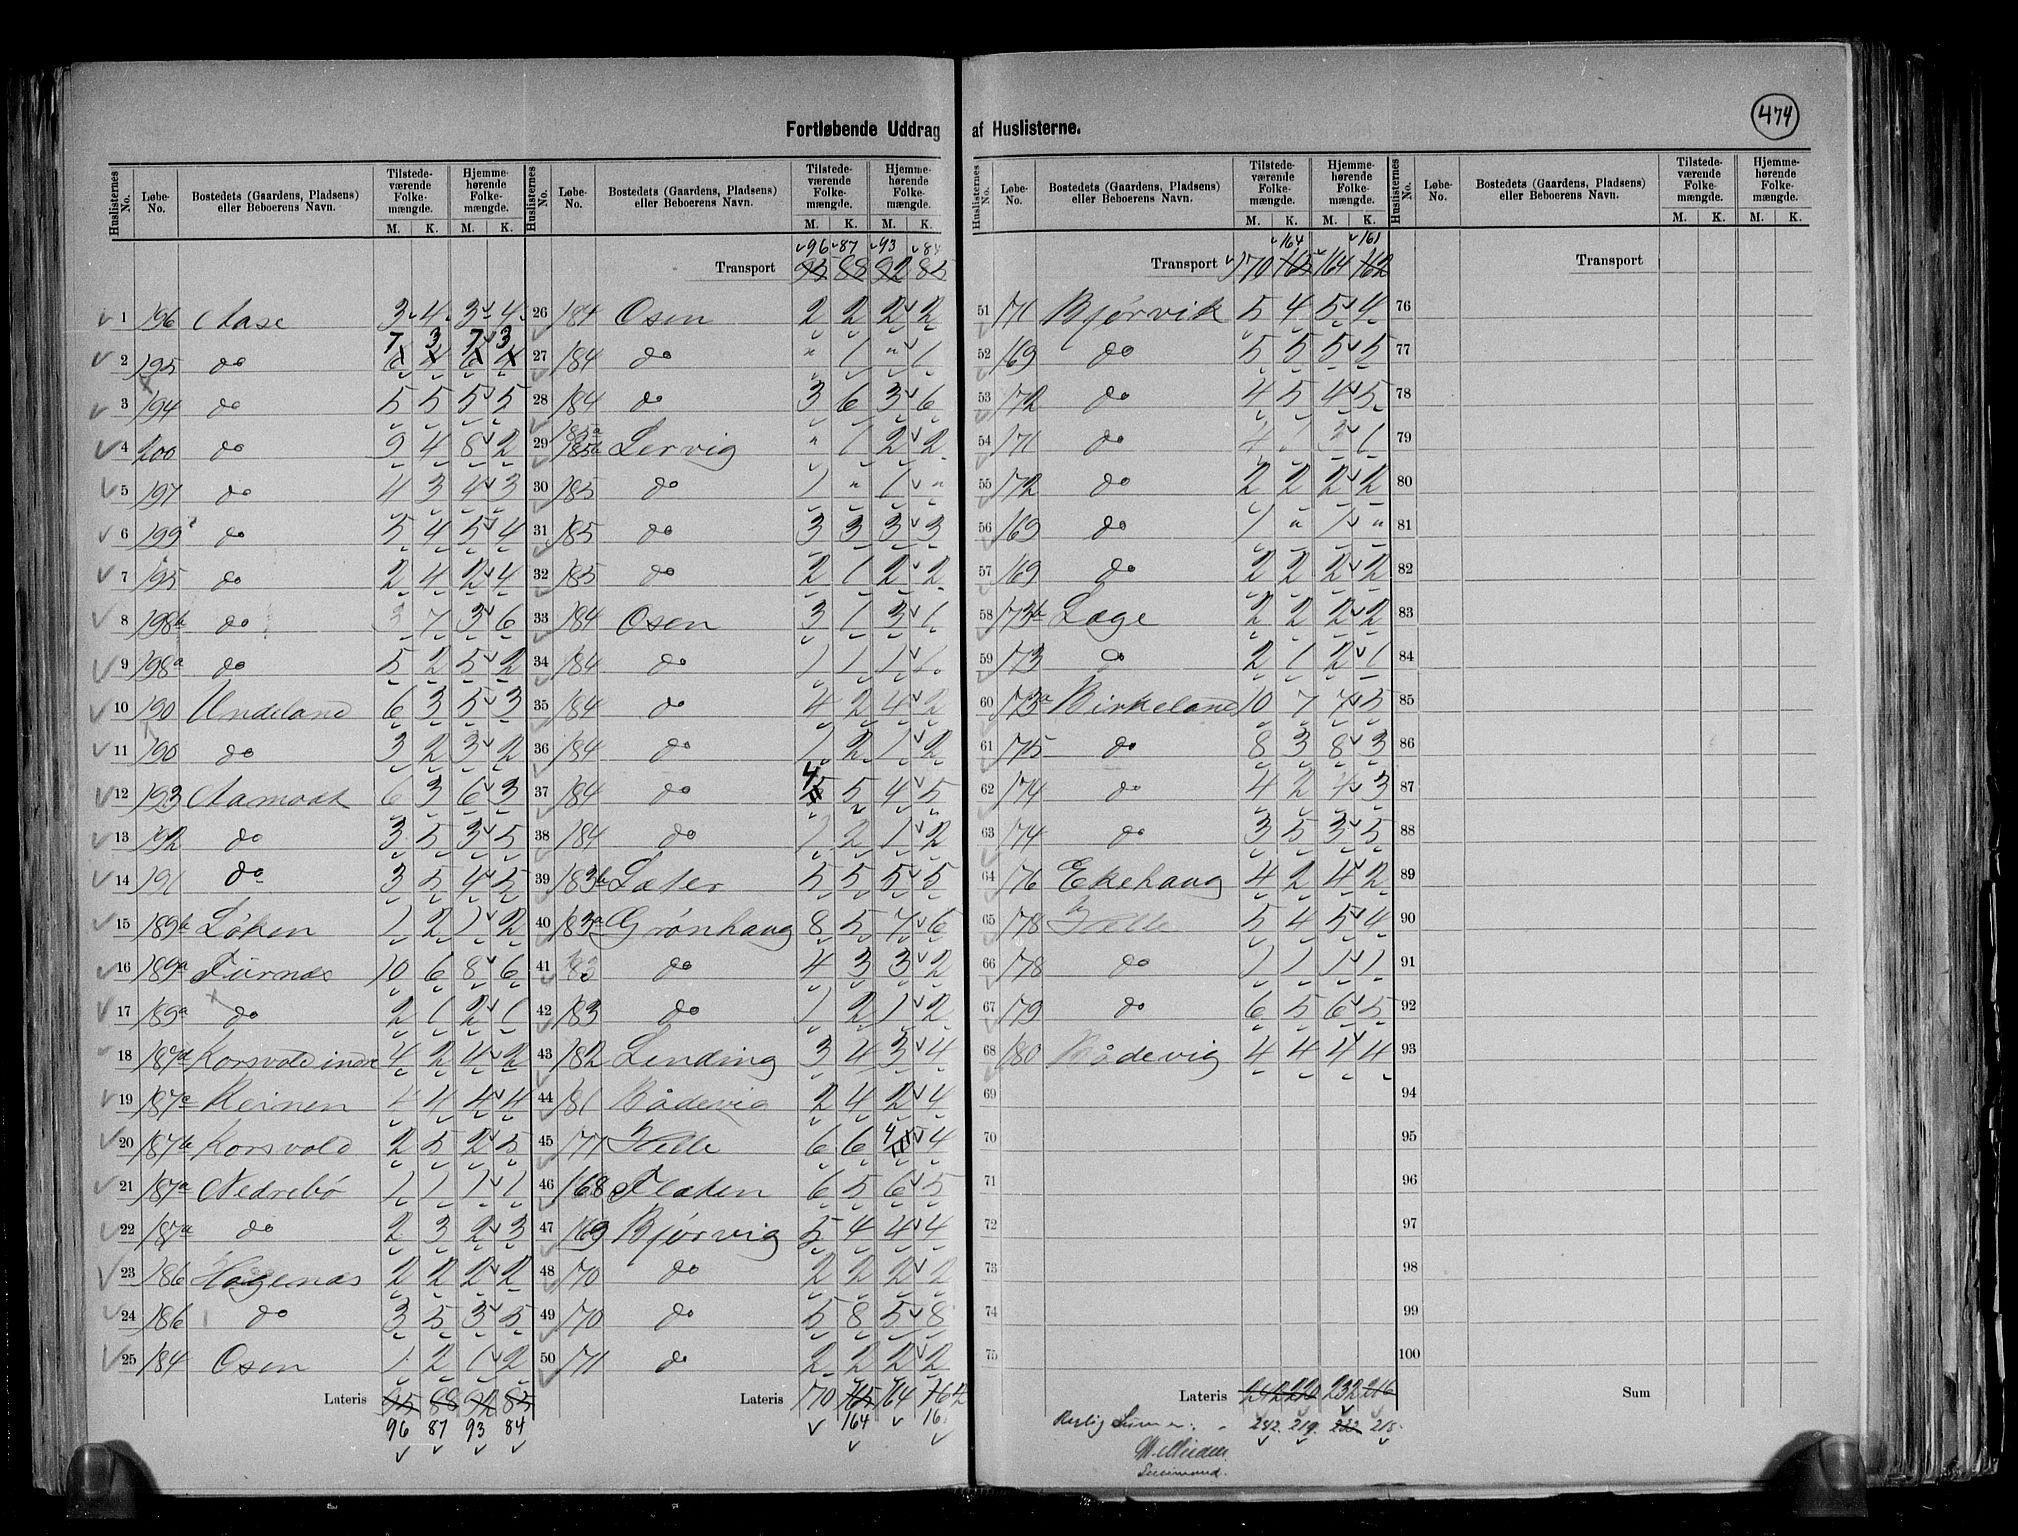 474
Fortløbende Uddrag af Huslisterne.
Huslisternes No. Løbe-No. Bostedets (Gaardens, Pladsens) eller Beboerens Navn. Tilstedeværende Folkemængde. Hjemmehørende Folkemængde.
M. K. M. K.
1 196 Aase 3 4 3 4
2 195 do 7 3 7 3
3 194 do 5 5 5 5
4 200 do 9 4 8 2
5 197 do 4 3 4 3
6 199 do 5 4 5 4
7 195 do 2 4 2 4
8 198b do 3 7 3 6
9 198a do 5 2 5 2
10 190 Undeland 6 3 5 3
11 190 do 3 2 3 2
12 193 Aamodt 6 3 6 3
13 192 do 3 5 3 5
14 191 do 3 5 4 5
15 189b Løken 1 2 1 2
16 189a Furnæs 10 6 8 6
17 189a do 2 1 2 1
18 187d Korsvold indre 4 2 4 2
19 187c Reinen 4 4 4 4
20 187b Korsvold 2 5 2 5
21 187a Nedrebø 1 1 1 1
22 187a do 2 3 2 3
23 186 Hagenæs 2 2 2 2
24 186 do 3 5 3 5
25 184 Osen 1 2 1 2
Lateris 95 88 92 85
96 87 93 84
Huslisternes No. Løbe-No. Bostedets (Gaardens, Pladsens) eller Beboerens Navn. Tilstedeværende Folkemængde. Hjemmehørende Folkemængde.
M. K. M. K.
96 87 93 84
Transport 95 88 92 85
26 184 Osen 2 2 2 2
27 184 do " 1 " 1
28 184 do 3 6 3 6
29 185a Lervig " 1 2 2
30 185 do 1 " 1 "
31 185 do 3 3 3 3
32 185 do 2 1 2 2
33 184 Osen 3 1 3 1
34 184 do 1 1 1 1
35 184 do 4 2 4 2
36 184 do 1 2 1 2
37 184 do 4 5 4 5
38 184 do 1 2 1 2
39 183b Sæter 5 5 5 5
40 183a Grønhaug 8 5 7 6
41 183 do 4 3 3 2
42 183 do 1 2 1 2
43 182 Lending 3 4 3 4
44 181 Bådevig 2 4 2 4
45 177 Helle 6 6 4 4
46 168 Flaten 6 5 6 5
47 169 Bjørvig 5 4 4 4
48 170 do 2 2 2 2
49 170 do 5 8 5 8
50 171 do 2 2 2 2
Lateris 170 165 164 162
164 161
Huslisternes No. Løbe-No. Bostedets (Gaardens, Pladsens) eller Beboerens Navn. Tilstedeværende Folkemængde. Hjemmehørende Folkemængde.
M. K. M. K.
164 161
Transport 170 165 164 162
51 171 Bjørvik 5 4 5 4
52 169 do 5 5 5 5
53 172 do 4 5 4 5
54 171 do 4 1 3 1
55 172 do 2 2 2 2
56 169 do 1 " 1 "
57 169 do 2 2 2 2
58 173b Lage 2 2 2 2
59 173 do 2 1 2 1
60 173a Birkeland 10 7 7 5
61 175 do 8 3 8 3
62 174 do 4 2 4 3
63 174 do 3 5 3 5
64 176 Ekehaug 4 2 4 2
65 178 Helle 5 4 5 4
66 178 do 1 1 1 1
67 179 do 6 5 6 5
68 180 Bådevig 4 4 4 4
69
70
71
72
73
74
75
Lateris 242 220 232 216
Rigtig Summer: 242. 219. 232 215.
Huslisternes No. Løbe-No. Bostedets (Gaardens, Pladsens) eller Beboerens Navn. Tilstedeværende Folkemængde. Hjemmehørende Folkemængde.
M. K. M. K.
Transport
76
77
78
79
80
81
82
83
84
85
86
87
88
89
90
91
92
93
94
95
96
97
98
99
100
Sum